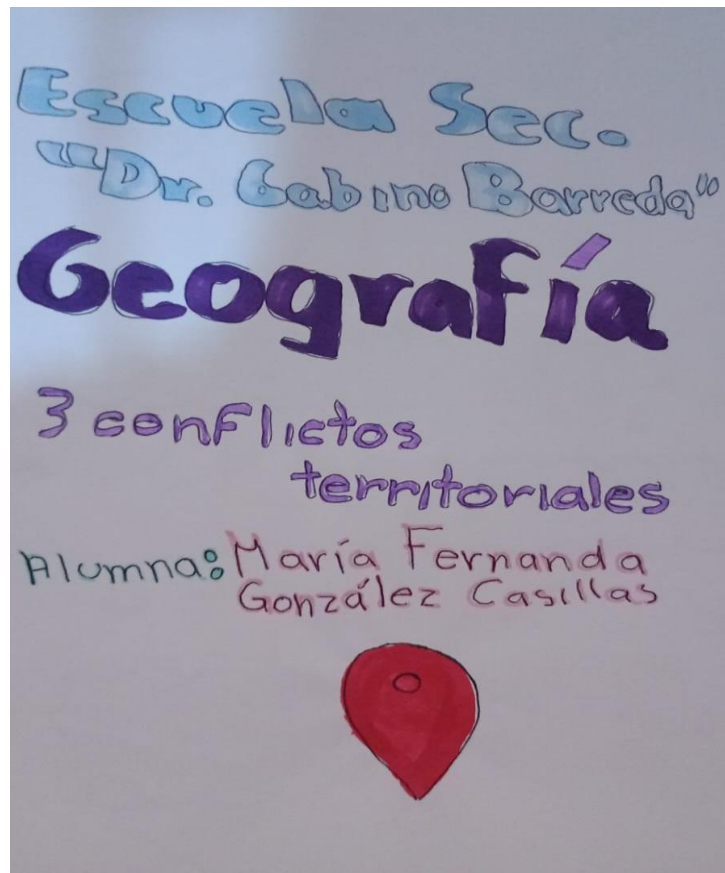 Escuela Sec.
"Dr. Gabino Barreda"
Geografía
3 conflictos
territoriales
Alumna: María Fernanda
González Casillas